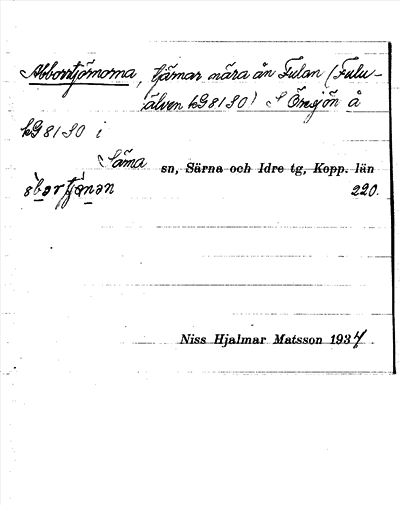 Abborrtjärnarna, tjärnar nära ån Fulan (Fulu-
älven kG 8180) S Öresjön å
kG 8180 i
Särna sn, Särna och Idre tg, Kopp. län
220.
Niss Hjalmar Matsson 1934.